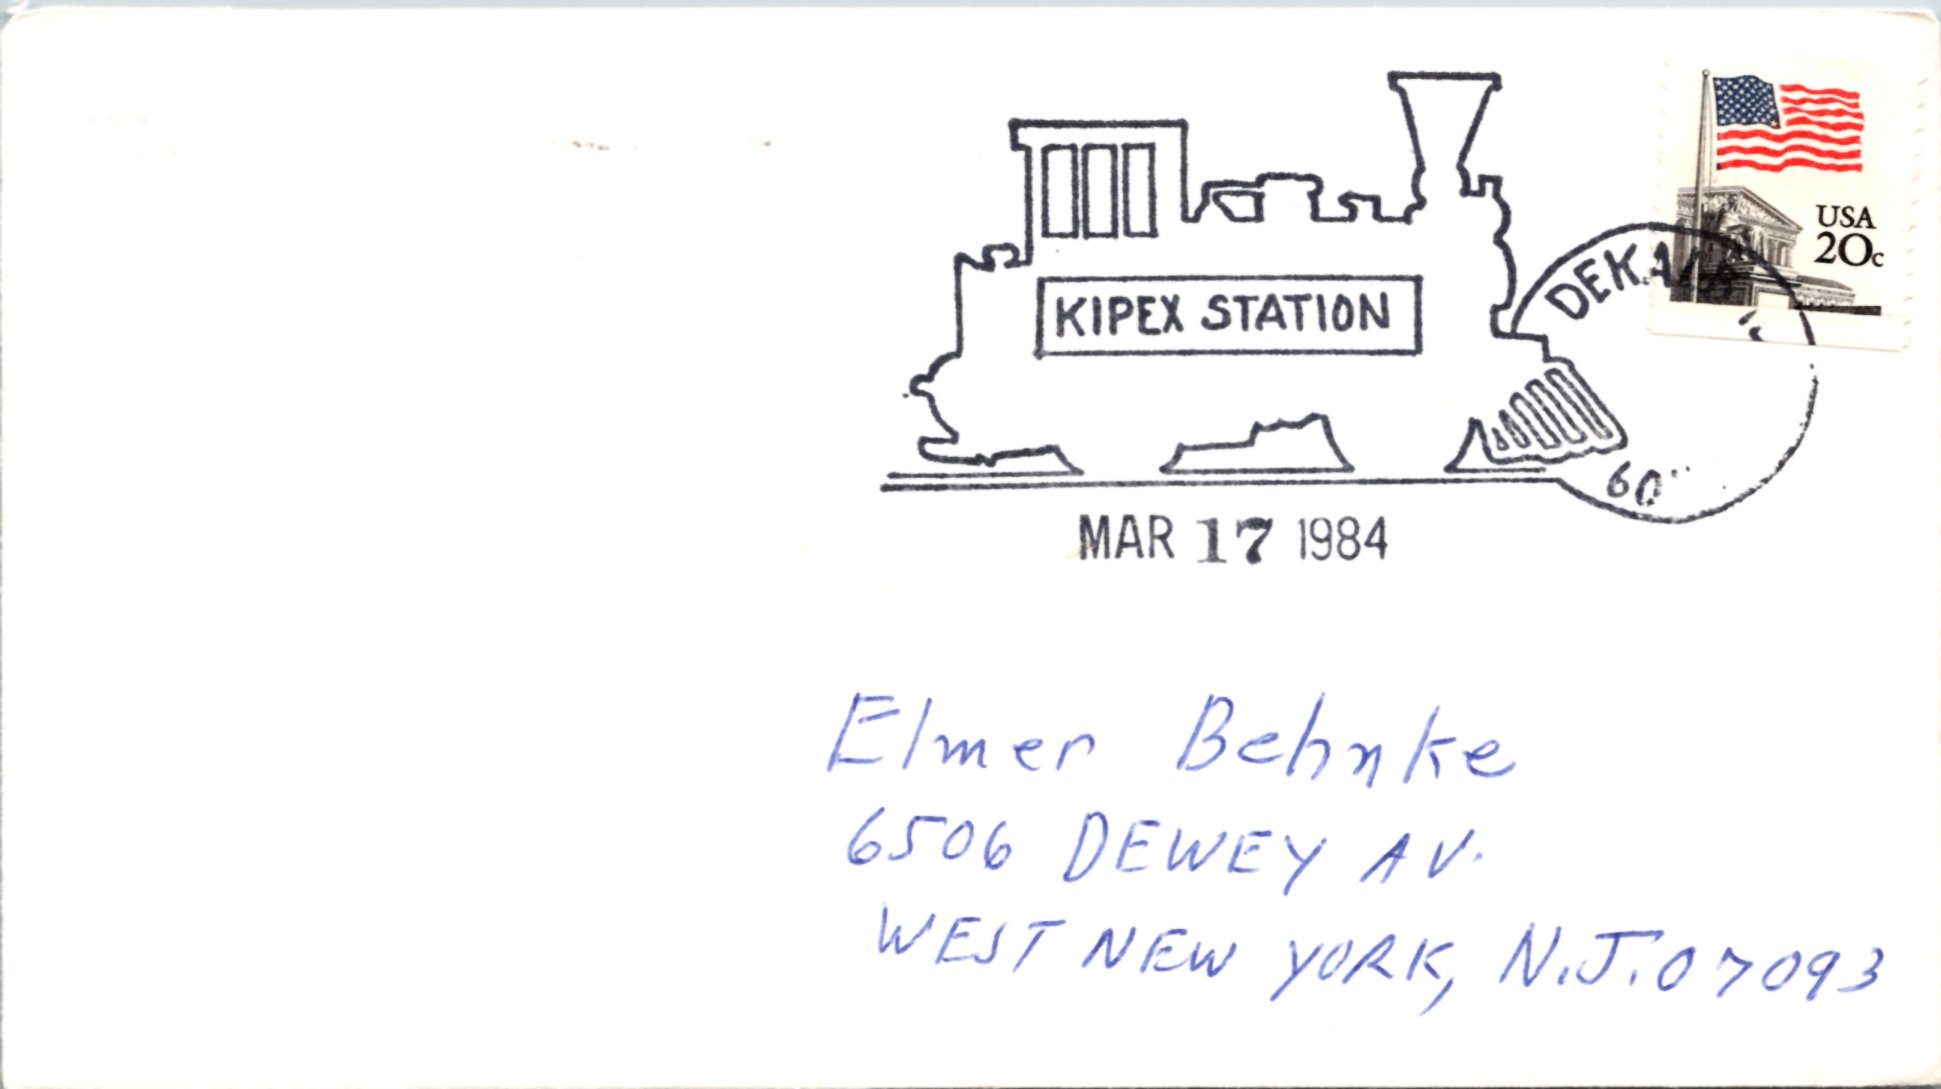 USA
20c
KIPEX STATION
MAR 17 1984
Elmer Behnke
6506 DEWEY AV.
WEST NEW YORK, N.J. 07093